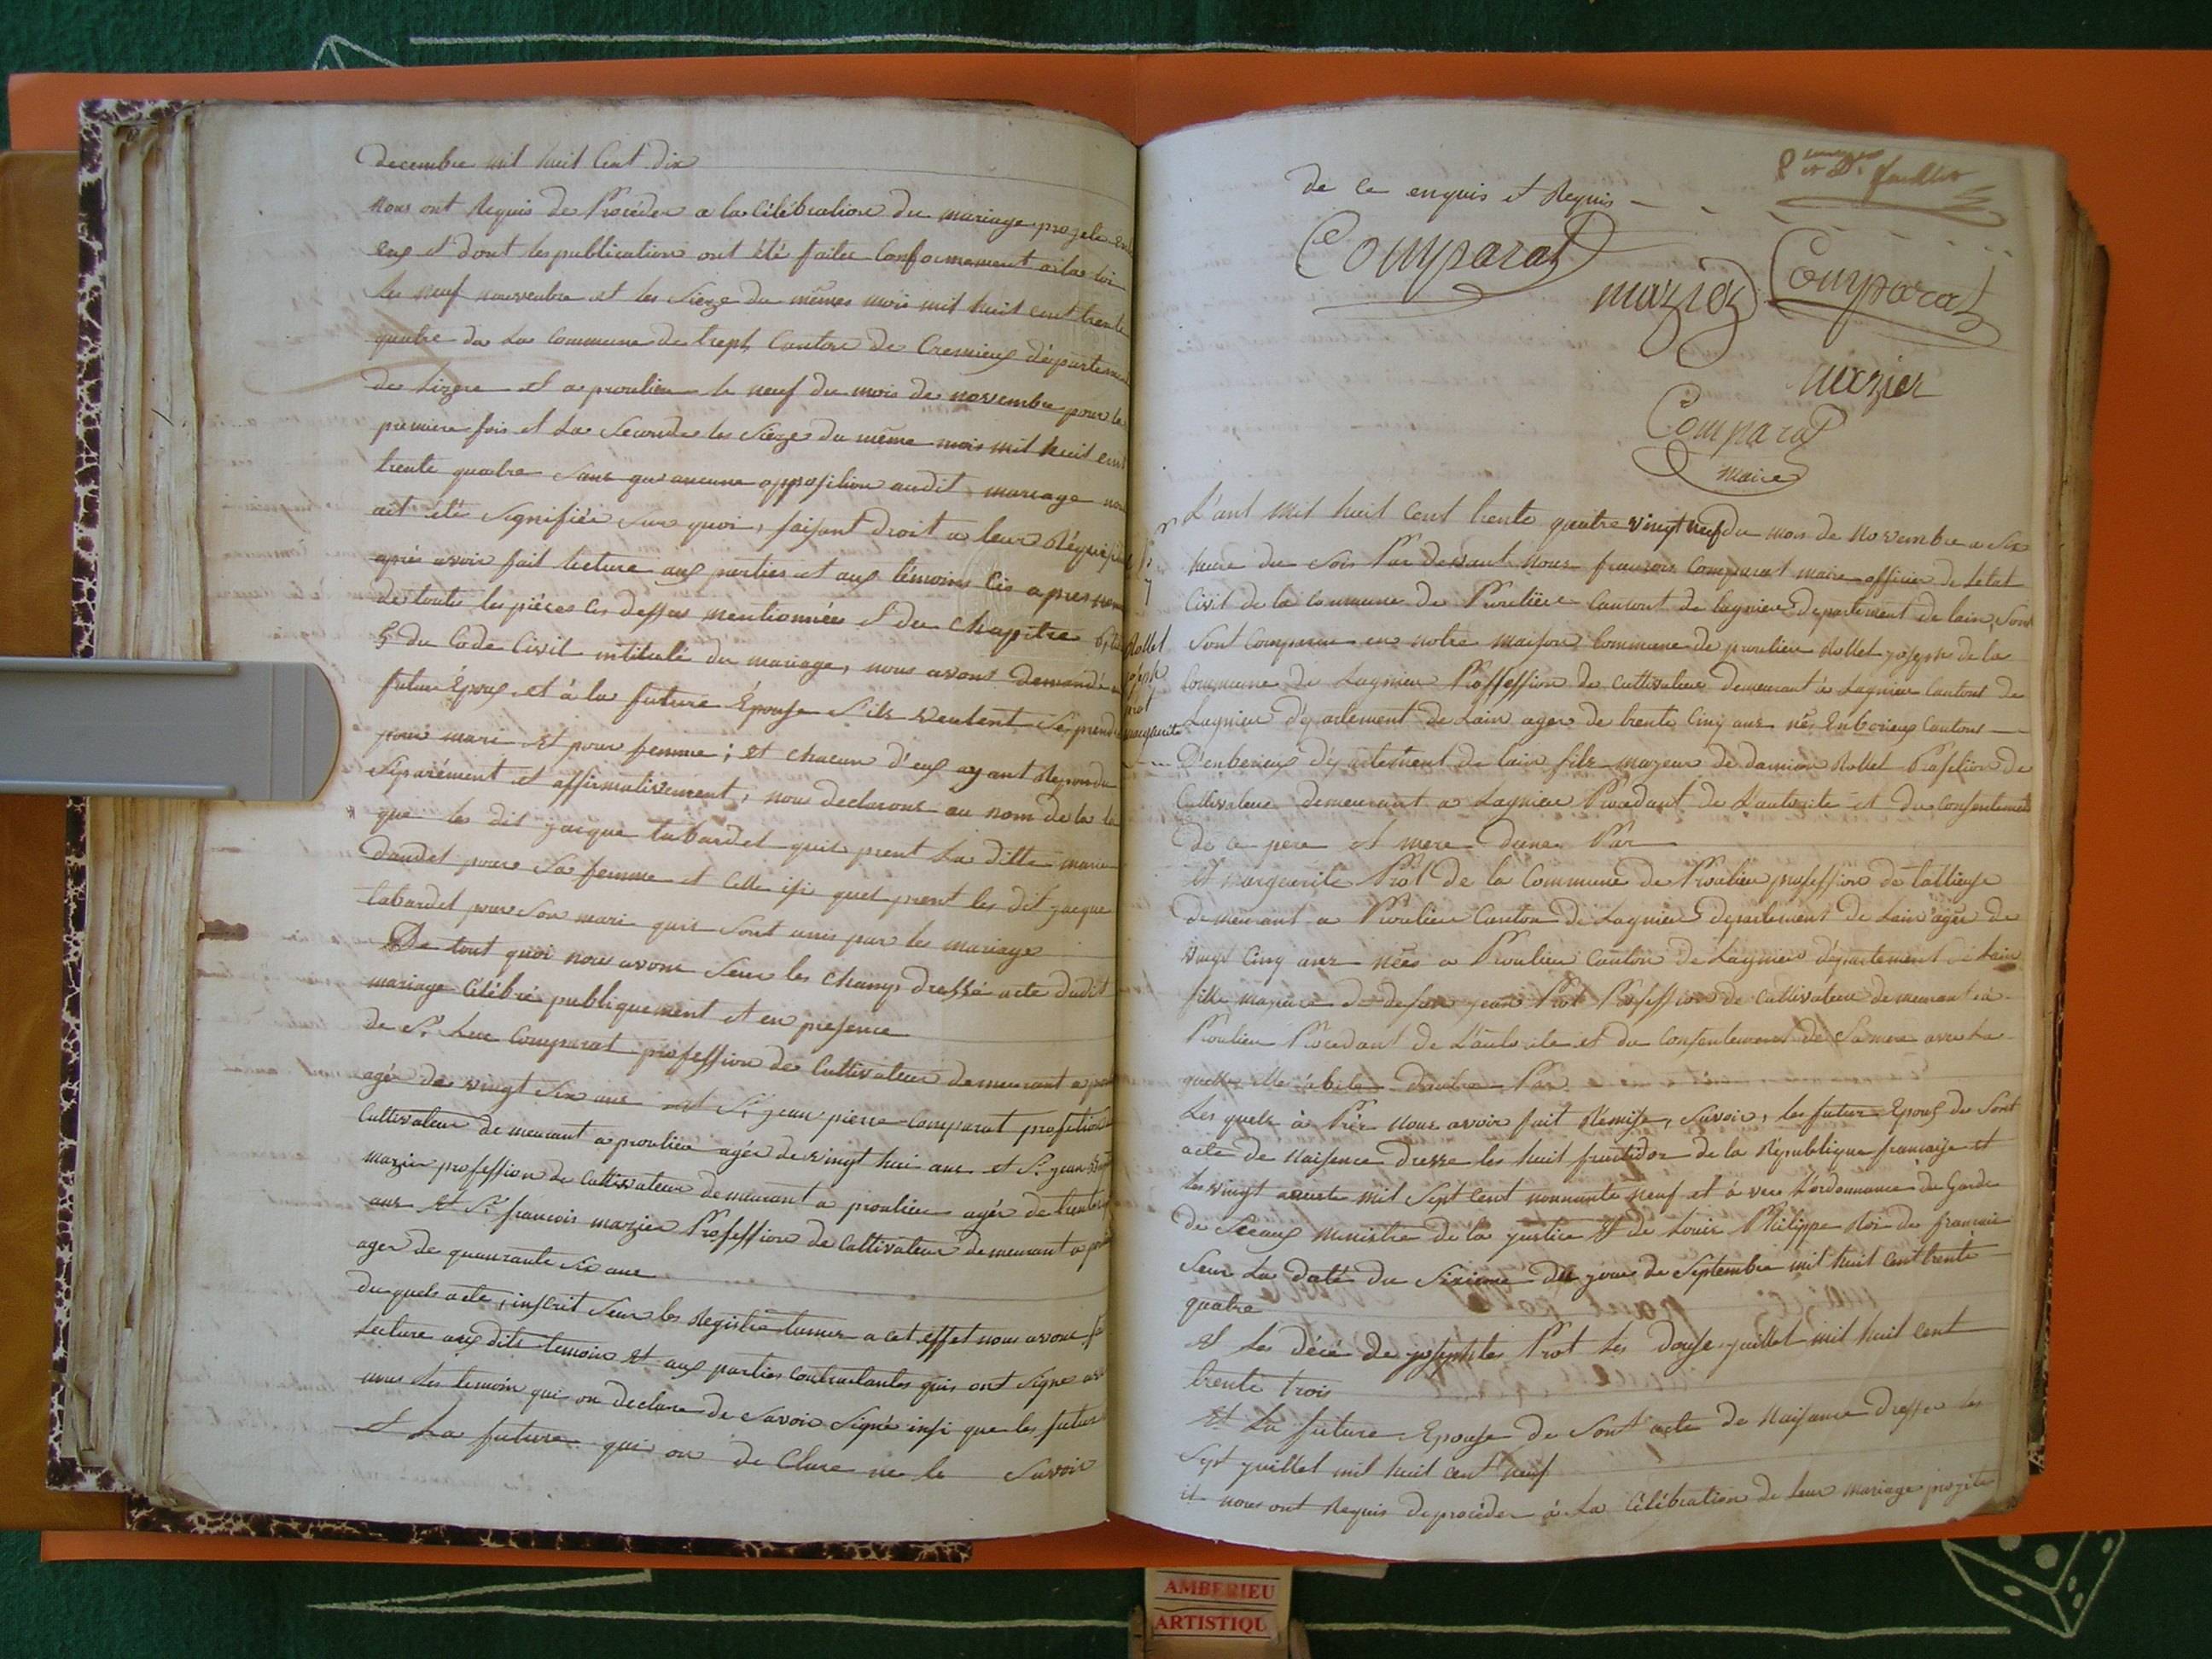 decembre mil huit Cent dix
nous ont Requis de Procéder a la Célébration du mariage projeté
eux et dont les publication ont été faites Conformement a la loi
les neuf novembre et les sieze du mêmes mois mil huit cent trente
quatre da la Commune de trept Canton de Cremieux département
de lizere et a proulieu le neuf du mois de novembre pour la
premiere fois et la Seconde les Sieze du même mois mil huit cent
trente quatre Sans qu'aucune opposition audit mariage nous
ait été signifiée sur quoi, faisant droit a leur Réquisi
après avoir fait lecture aux parties et aux témoins Ciés apres
de toutes les pièces Ci dessus mentionnées et du chapitre 6
5 du Code Civil intitulé du mariage, nous avons demandé au
futur Epoux et à la future Épouse s'ils veulent se prendre
pour mari et pour femme ; et chacun d'eux ayant Repondu
séparément et affirmativement, nous declarons au nom de la loi
que les dit jacque tabardet quil prent La ditte marie
daudet pour Sa femme et Celle isi quel prent les dit jacque
tabardet pour Son mari quis Sont unis par les mariage
De tout quoi nous avons Seur les champs dressé acte dudit
mariage Célébré publiquement et en presence
de Sr. Luc Comparat profession de Cultivateur demeurant a
agér de vingt Six ans et Sr. jean pierre Comparat profetion
Cultivateur demeurant a proulieu agér de vingt hui ans et Sr. jean
mazier profession de Cultivateur demeurant a proulieu agér de trente
ans Et Sr. francois mazier Profession de Cultivateur demeurant a
ager de quaurante Six ans
du quels acte, inscrit Seur les Registre tenues a cet effet nous avons
Lecture aux dits temoins Et aux parties Contractantes quis ont Signe
nous les temoin qui on declare de Savoir Signé insi que les futur
et La future qui on de Clare ne le Savoir
de Ce enquis et Requis
Comparat
mazier
Comparat
mazier
Comparat
maire
Rollet
joseph
prot
marguerite
L'ant mil huit Cent trente quatre vingt neuf du mois de Novembre a Six
heure du Soir Par devant nous francois Comparat maire officier de letat
Civil de la Commune de Proulieu Cantont de lagnieu departement de lain Sont
Sont Comparue en notre maison Commune de proulieu Rollet joseph de la
Commune de Lagnieu Proffession de Cultivateur demeurant à Lagnieu Cantont de
Lagnieu département de Lain ager de trente Cinq ans né Enberieux Cantont
D'enberieux département de lain fils mageur de damien Rollet Profetion de
Cultivateur demeurant a Lagnieu Procedant de L'autorite et du Consentement
de Ce pere et mere dune Par
Et marguerite Prot de la Commune de Proulieu profession de tallieuse
demeurant a Proulieu Canton de Lagnieu departement de Lain agér de
vingt Cinq ans néés a Proulieu Canton de Lagnieu département de Lain
fille majeure de defun jean Prot Profession de Cultivateur demeurant à
Proulieu Procedant de L'autorite et du Consentement de Sa mere avec La
quelle elle abite dautre Par
Les quels à Près nous avoir fait Remise, Savoir, les futur Epoux de Sont
acte de Naisence dresse les huit fructidor de la République francaise et
Les vingt aoust mil Sept Cent nonnante neuf et à vec L'ordonnance du Garde
de Sceaux ministre de la justice Et de Louis Philippe Roi de francais
Seur La daté du Sixieme du jour de Septembre mil huit Cent trente
quatre
Et Les décé de josephte Prot Les douse juillet mil huit Cent
trente trois
Et La future Epouse de Sont acte de Naisance dresser les
Sept juillet mil huit Cent neuf
et nous ont Requis de procéder à La Célébration de Leur mariage projeté
AMBERIEU
ARTISTIQU